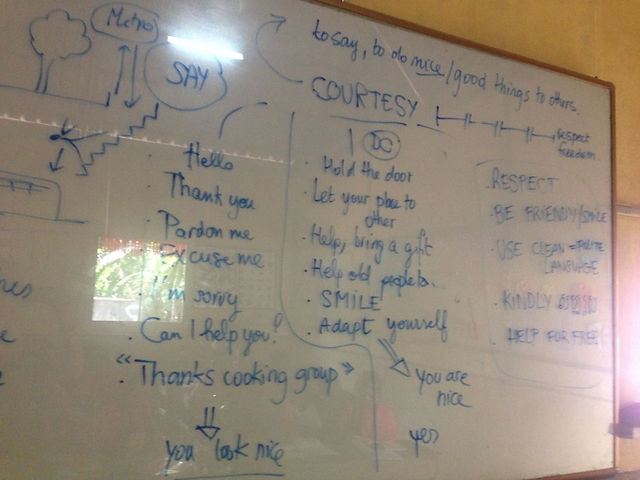 Metro
SAY
to say, to do nice/good things to others.
COURTESY
respect
freedom
Hello
Thank you
Pardon me
Excuse me
I'm sorry
Can I help you?
"Thanks cooking group"
you look nice
DO
Hold the door
Let your place to
other
Help, bring a gift
Help old people
SMILE
Adapt yourself
you are
nice
yes
RESPECT
BE FRIENDLY/SMILE
USE CLEAN = POLITE
LANGUAGE
KINDLY
HELP FOR FREE